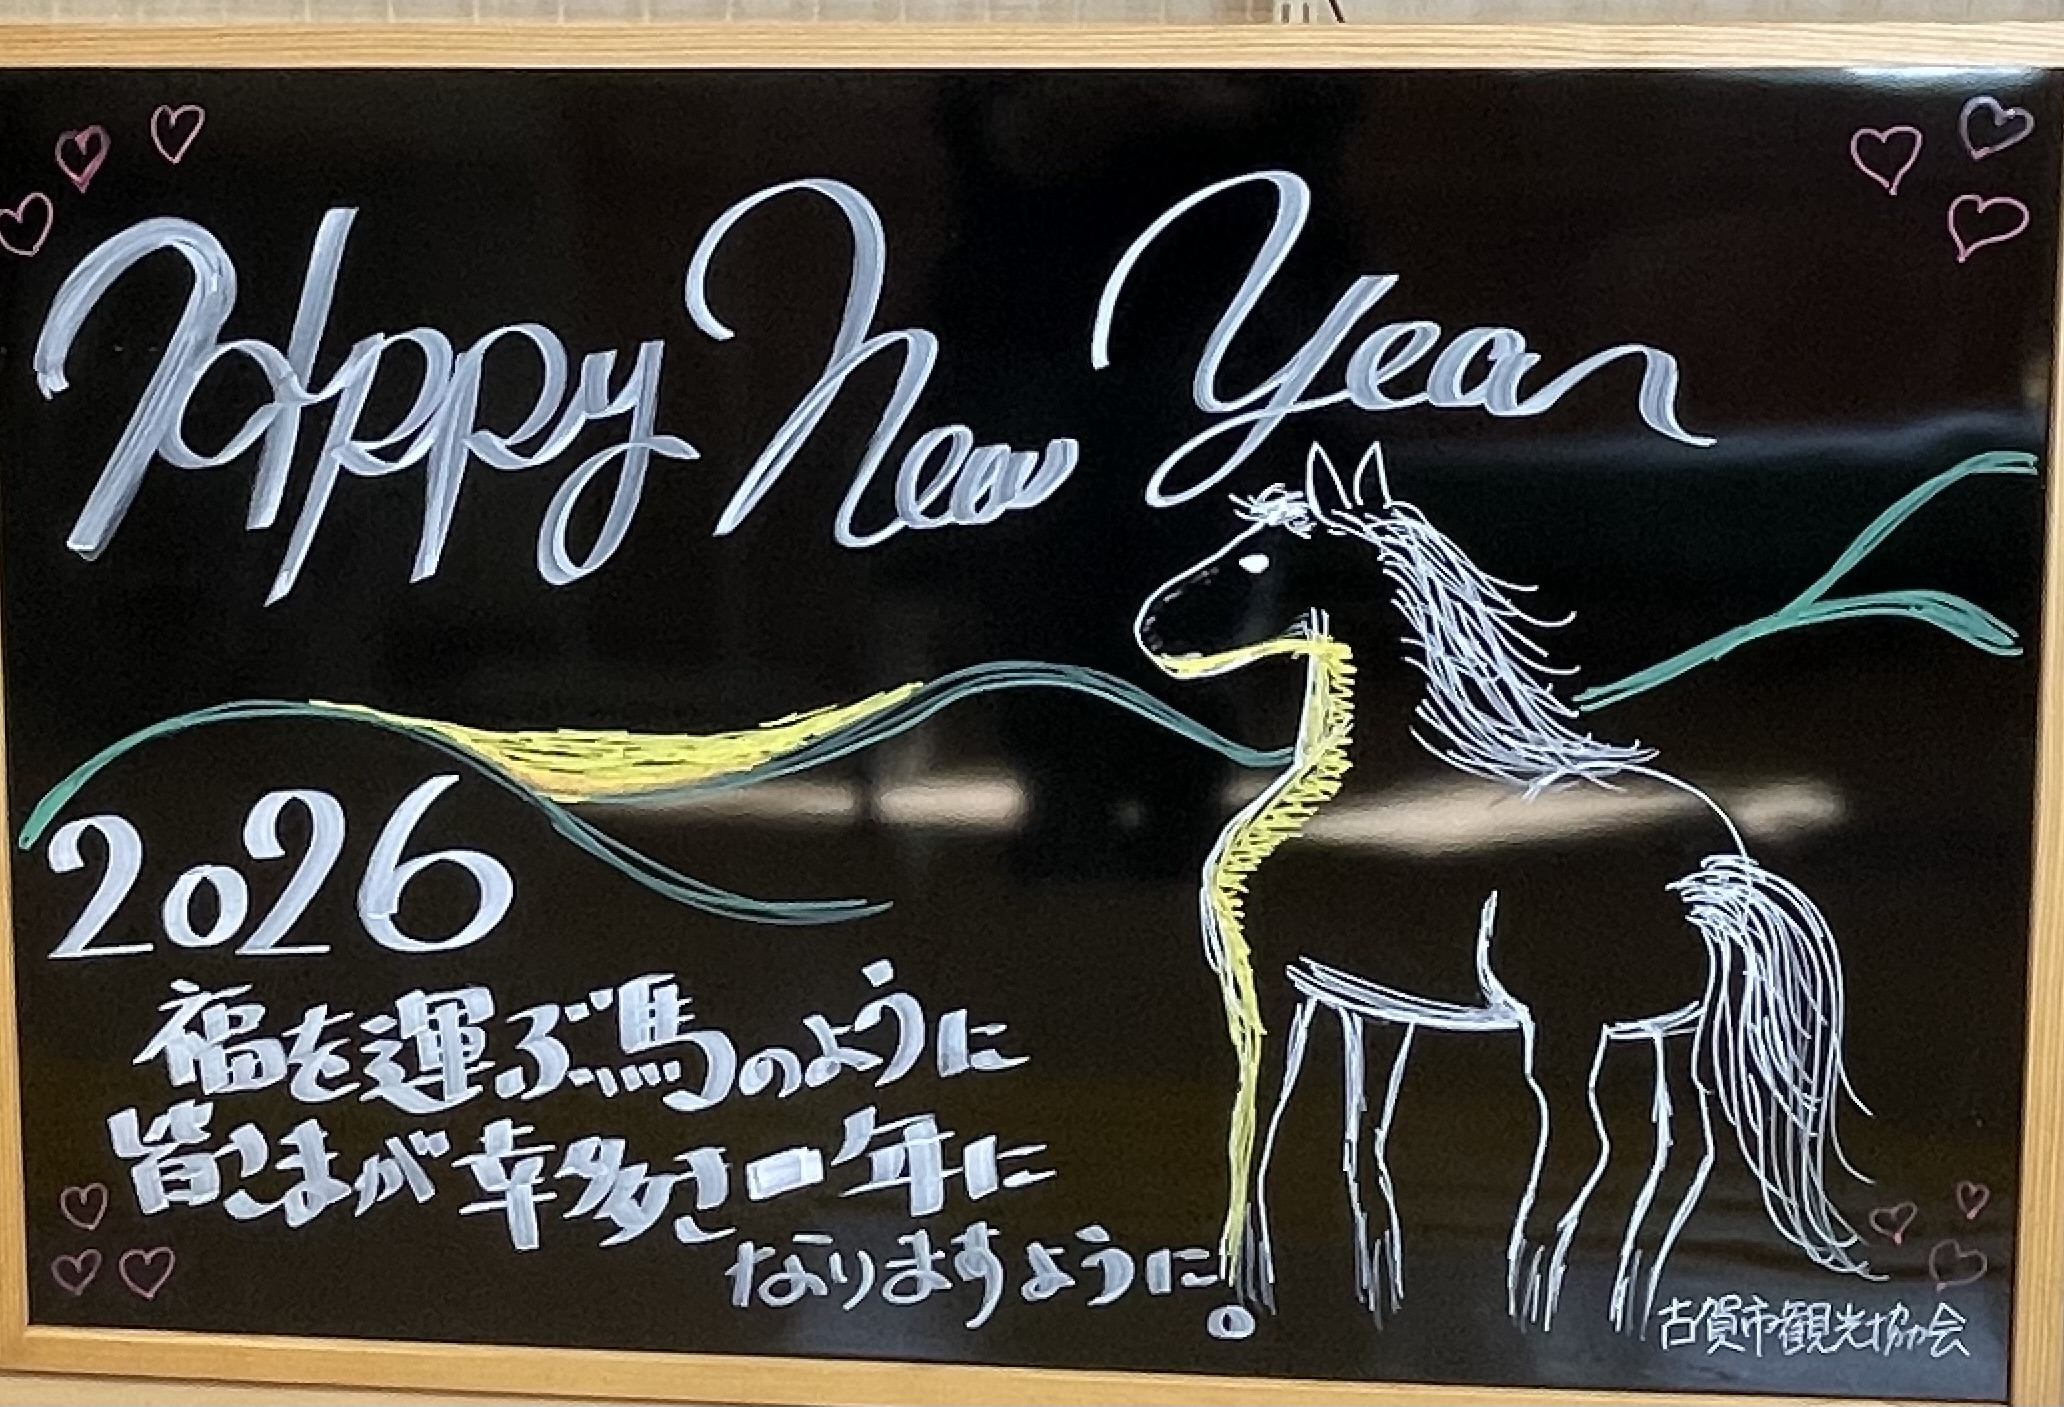 Happy New Year
2026
福を運ぶ馬のように
皆さまが幸多き一年に
なりますように。
古賀市観光協会